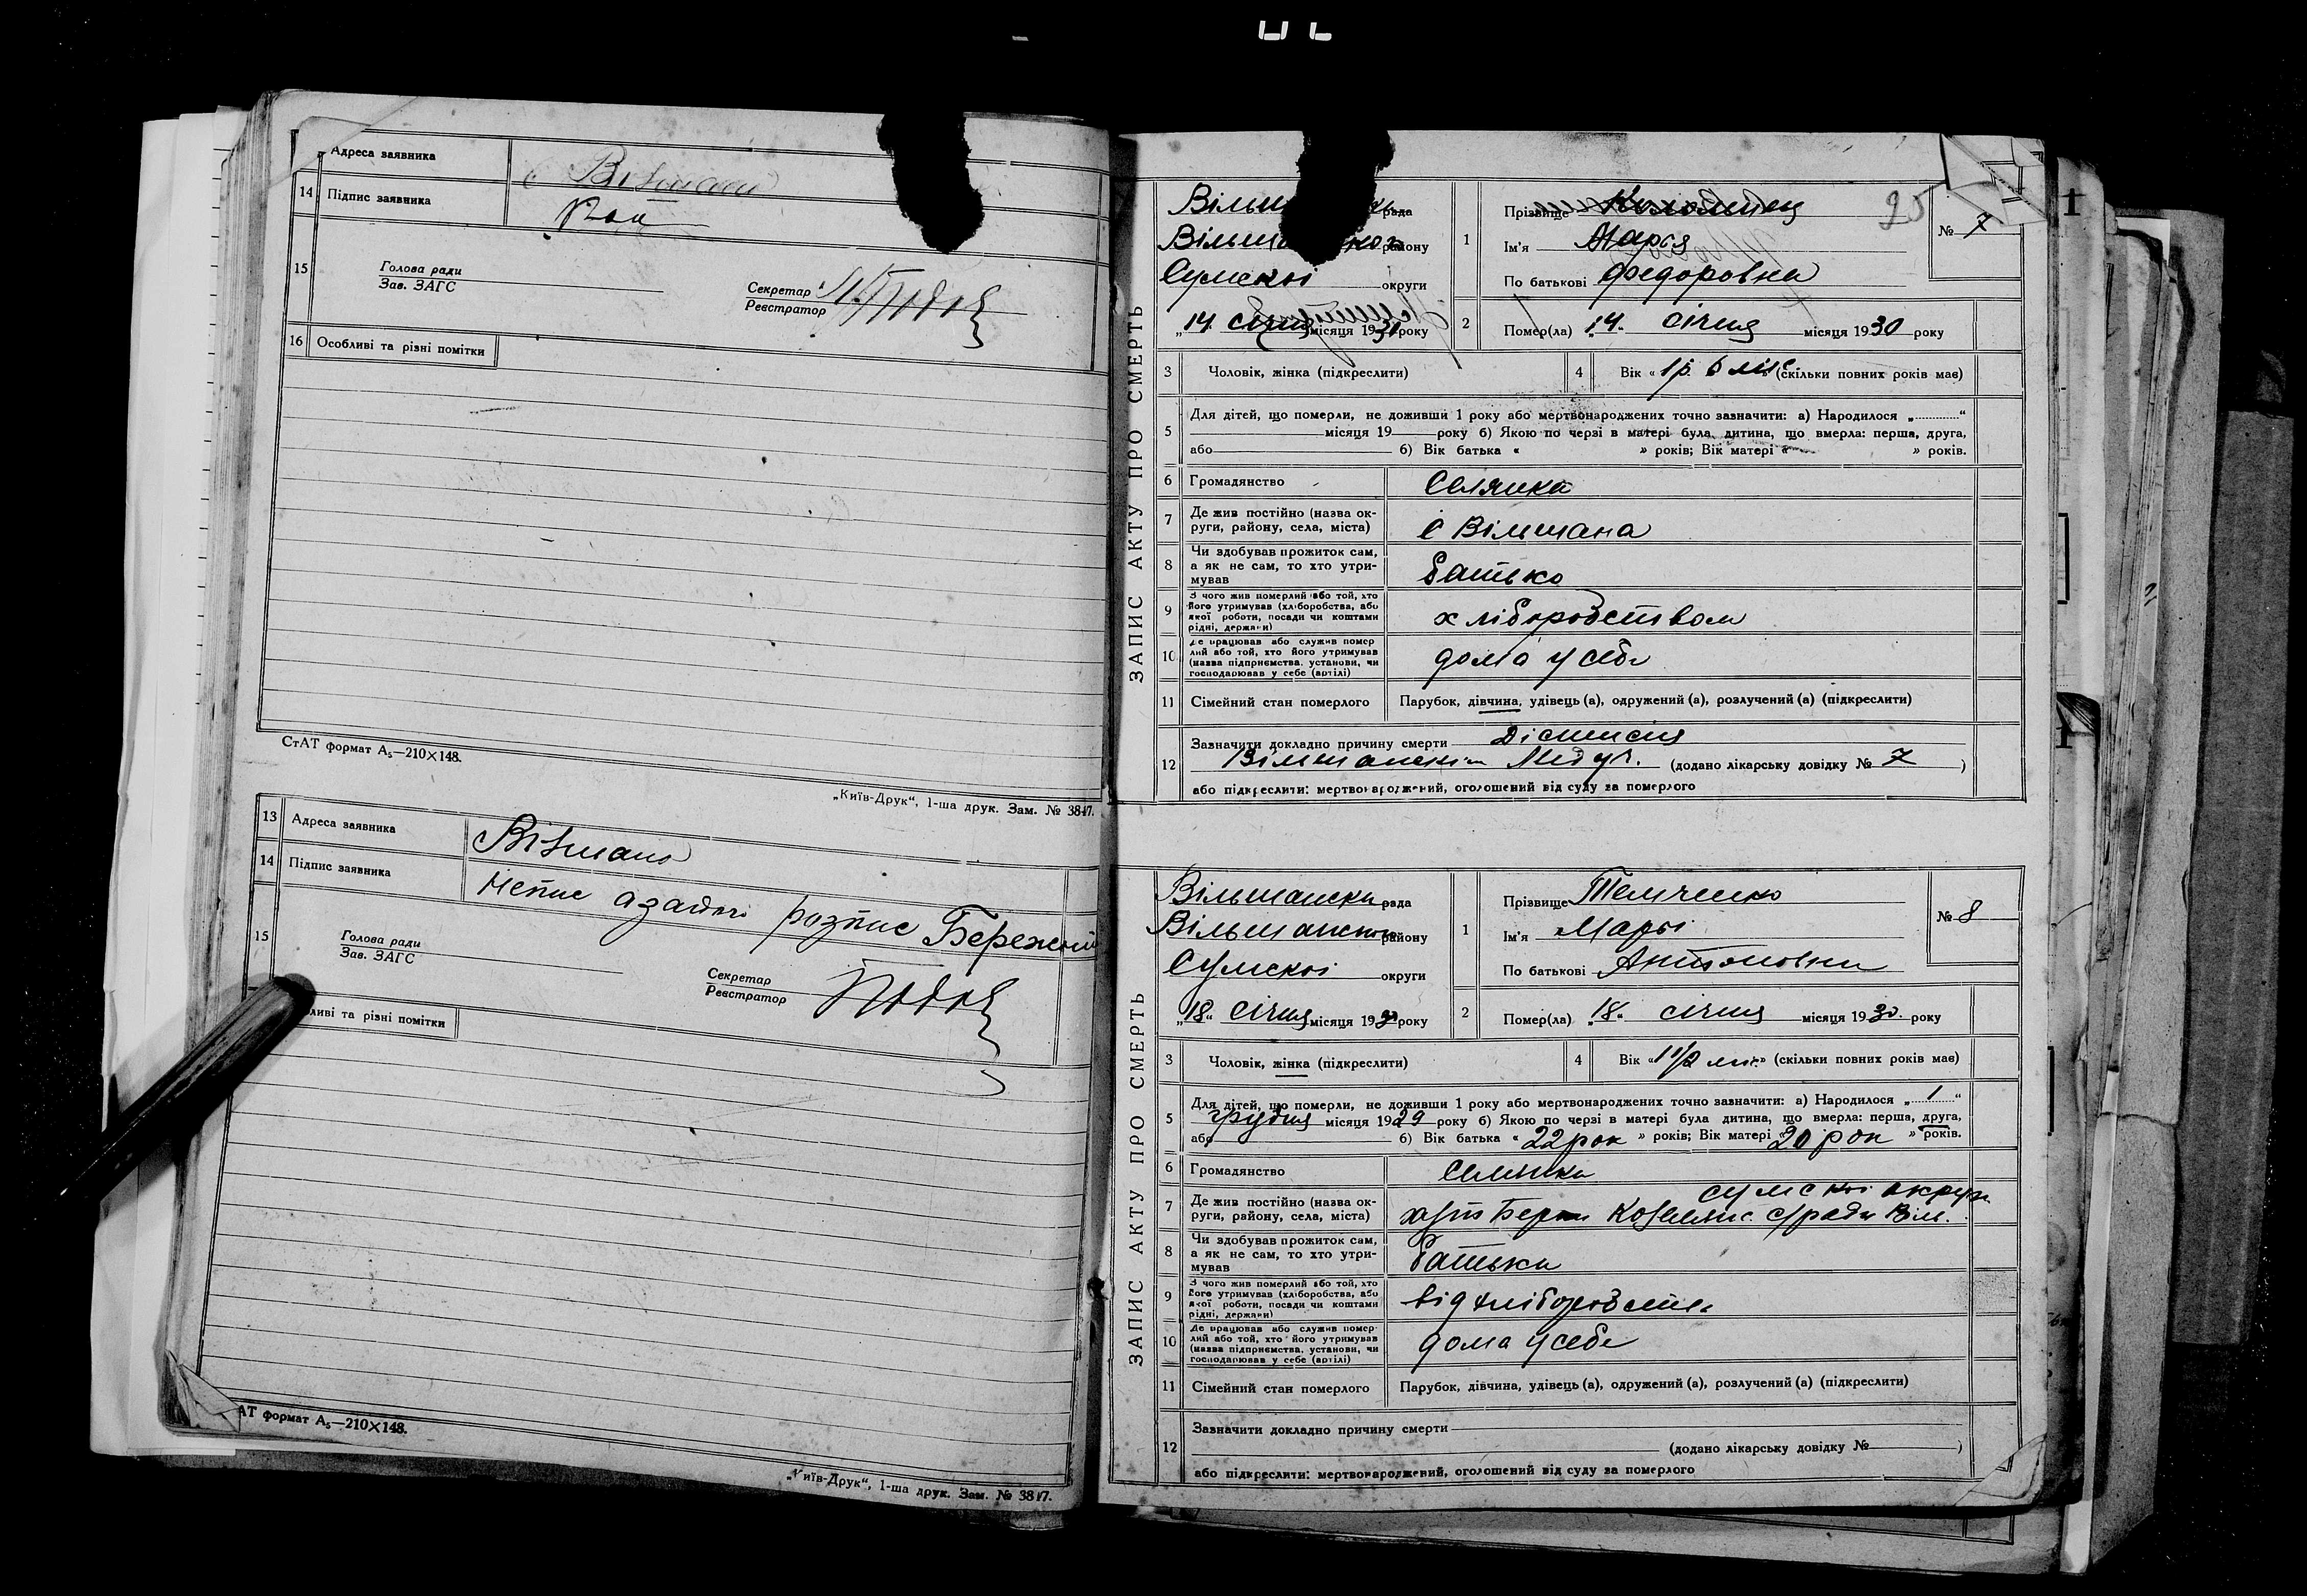 Адреса заявника
14 Підпис заявника
15 Голова ради
Зав. ЗАГС
Секретар
Реєстратор
16 Особливі та різні помітки
СтАТ формат А5—210×148.
„Київ-Друк“, 1-ша друк. Зам. № 3847.
13 Адреса заявника Вільшана
14 Підпис заявника розпис Бережний
15 Голова ради
Зав. ЗАГС
Секретар
Реєстратор
ливі та різні помітки
АТ формат А5—210×148.
„Київ-Друк“, 1-ша друк. Зам. № 3847.
ЗАПИС АКТУ ПРО СМЕРТЬ
25
рада
району
Сумскоі округи
„14“ січня місяця 1930 року
1 Прізвище Коломіец
Ім'я Марія
По батькові Федоровна
№ 7
2 Помер(ла) „14“ січня місяця 1930 року
3 Чоловік, жінка (підкреслити)
4 Вік « 1 р. 6 міс » (скільки повних років має)
5 Для дітей, що померли, не доживши 1 року або мертвонароджених точно зазначити: а) Народилося „ “
місяця 19 року б) Якою по черзі в матері була дитина, що вмерла: перша, друга,
або б) Вік батька « » років; Вік матері « » років.
6 Громадянство Селянка
7 Де жив постійно (назва округи, району, села, міста) с Вільшана
8 Чи здобував прожиток сам, а як не сам, то хто утримував Батько
9 З чого жив померлий або той, хто його утримував (хліборобства, або якої роботи, посади чи коштами рідні, держави) хліборобством
10 Де працював або служив померлий або той, хто його утримував (назва підприємства, установи, чи господарював у себе (артілі) дома у себе
11 Сімейний стан померлого Парубок, дівчина, удівець (а), одружений (а), розлучений (а) (підкреслити)
12 Зазначити докладно причину смерти
(додано лікарську довідку № 7 )
або підкреслити: мертвонароджений, оголошений від суду за померлого
ЗАПИС АКТУ ПРО СМЕРТЬ
Вільшанска рада
Вільшанского району
Сумскоі округи
„18“ січня місяця 1930 року
1 Прізвище Темченко
Ім'я Марьі
По батькові Антоновни
№ 8
2 Помер(ла) „18“ січня місяця 1930 року
3 Чоловік, жінка (підкреслити)
4 Вік « 1 1/2 міс » (скільки повних років має)
5 Для дітей, що померли, не доживши 1 року або мертвонароджених точно зазначити: а) Народилося „ 1 “
грудня місяця 1929 року б) Якою по черзі в матері була дитина, що вмерла: перша, друга,
або б) Вік батька « 22 рок » років; Вік матері « 20 рок » років.
6 Громадянство Селянка
7 Де жив постійно (назва округи, району, села, міста) Сумскоі округи
хут
8 Чи здобував прожиток сам, а як не сам, то хто утримував Батьки
9 З чого жив померлий або той, хто його утримував (хліборобства, або якої роботи, посади чи коштами рідні, держави) від хліборобства
10 Де працював або служив померлий або той, хто його утримував (назва підприємства, установи, чи господарював у себе (артілі) дома у себе
11 Сімейний стан померлого Парубок, дівчина, удівець (а), одружений (а), розлучений (а) (підкреслити)
12 Зазначити докладно причину смерти
(додано лікарську довідку № )
або підкреслити: мертвонароджений, оголошений від суду за померлого